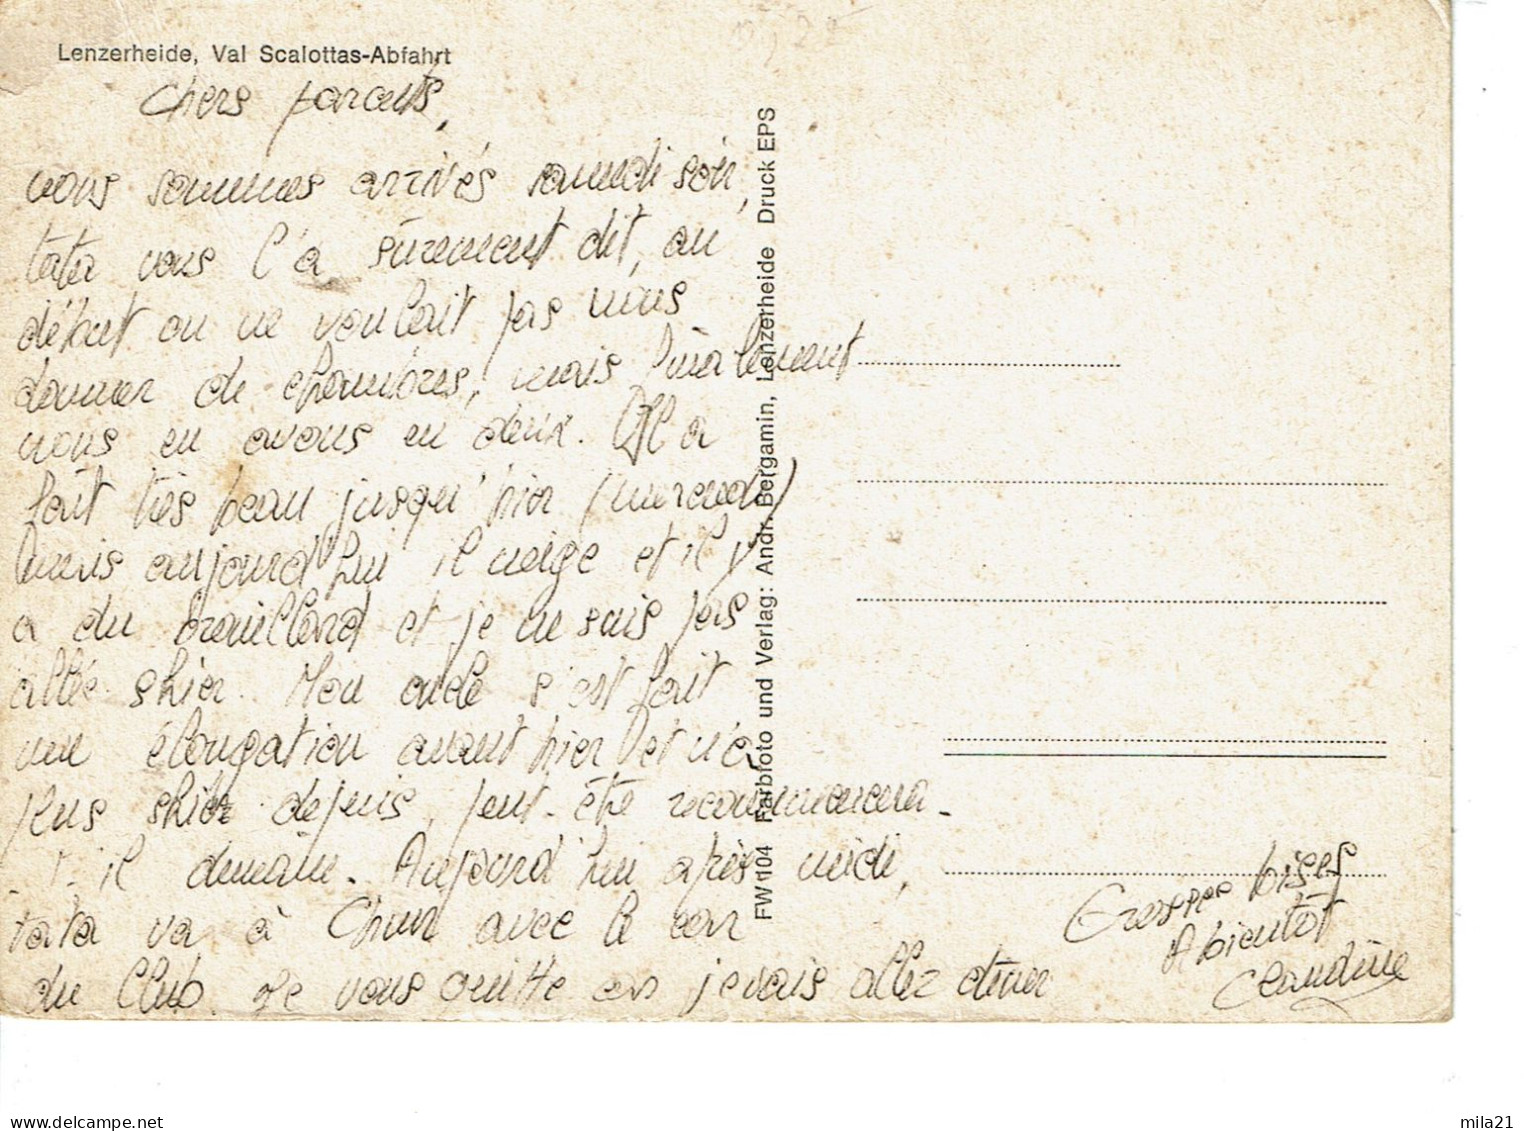 Lenzerheide, Val Scalottas-Abfahrt
Chers parents,
nous sommes arrivés samedi soir,
tata vous l'a sûrement dit, au
début on ne voulait pas nous
donner de chambres, mais finalement
nous en avons eu deux. Il a
fait très beau jusqu'hier (mercredi)
mais aujourd'hui il neige et il y
a du brouillard et je ne suis pas
allée skier. Mon oncle s'est fait
une élongation avant hier et n'a
plus skier depuis, peut-être recommencera-
-t-il demain. Aujourd'hui après midi,
tata va à Chur avec le car
du Club. Je vous quitte car je vais allez dîner
Grosses bises
A bientôt
Claudine
FW 104 Farbfoto und Verlag: Andr. Bergamin, Lenzerheide Druck EPS
mila21